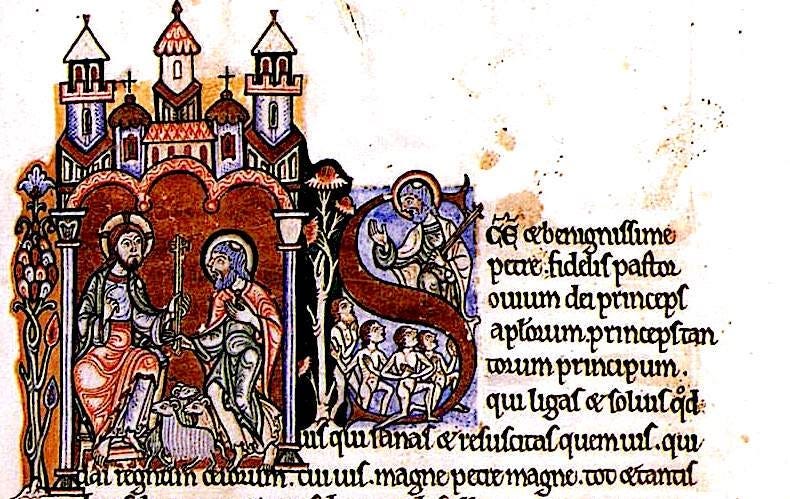 S
c̄e & benignissime
petre. fidelis pastor
ouium dei princeps
apl̄orum. princeps tan
torum principum.
qui ligas & soluis qđ
uis qui sanas & resuscitas quem uis. qui
das regnum celorum. cui uis. magne petre magne. tot & tantis